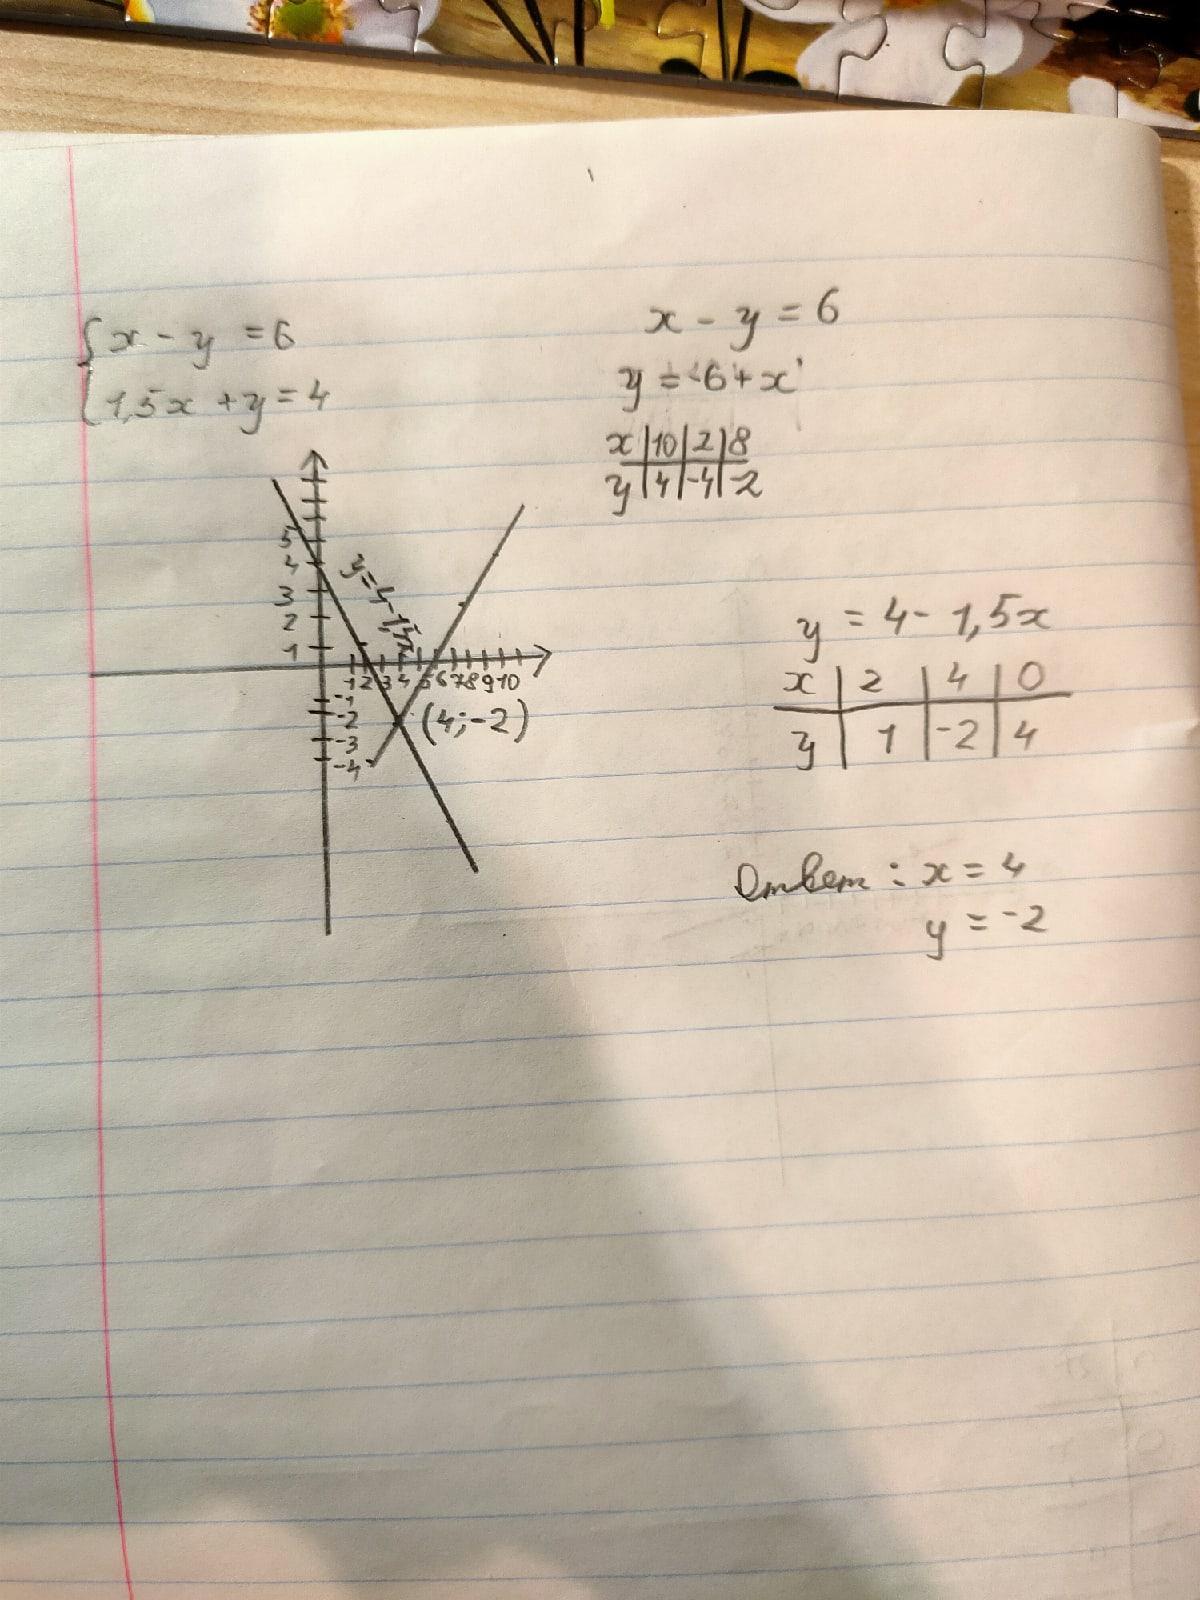 x - y = 6
1,5x + y = 4
x - y = 6
y = -6 + x
x | 10 | 2 | 8
y | 4 | -4 | -2
5
4
3
2
1
y = 4 - 1,5x
1 2 3 4 5 6 7 8 9 10
-1
-2
-3
-4
(4; -2)
y = 4 - 1,5x
x | 2 | 4 | 0
y | 1 | -2 | 4
Ответ: x = 4
y = -2